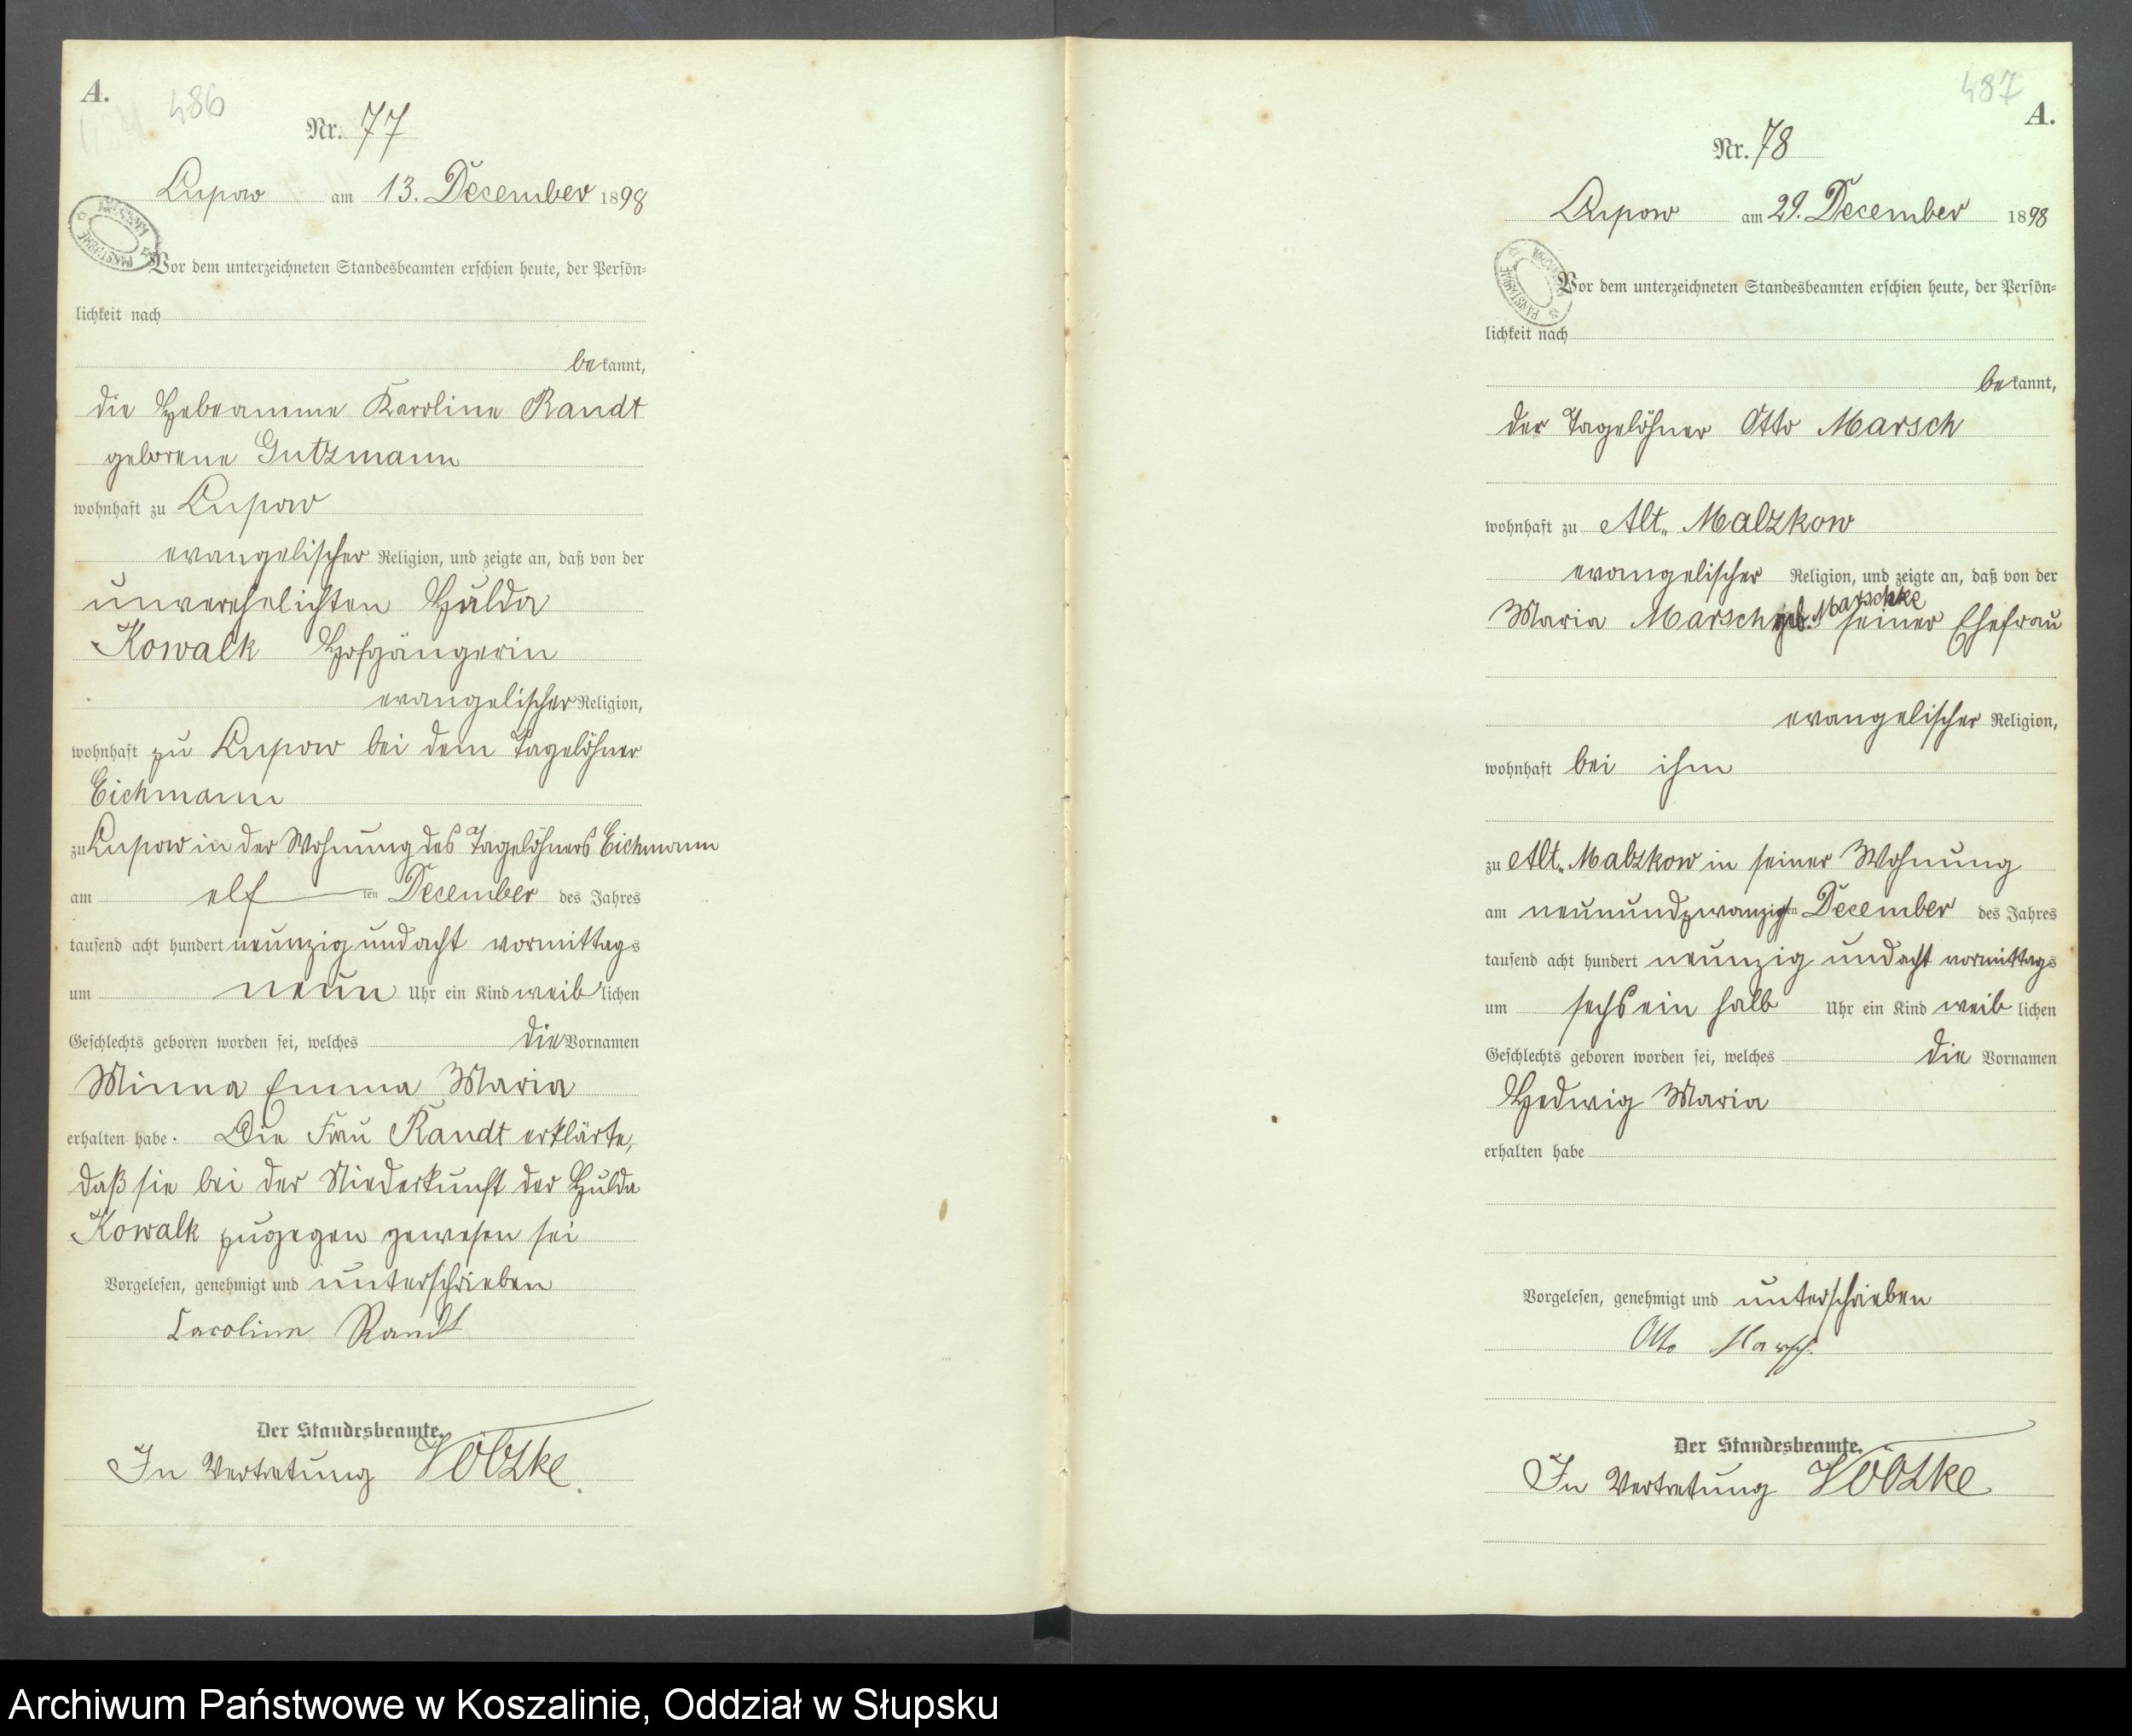 A.
486
Nr. 77
Lupow am 13. December 1898
Vor dem unterzeichneten Standesbeamten erschien heute, der Persön-
lichkeit nach
bekannt,
die Hebeamme Karoline Randt
geborene Gutzmann
wohnhaft zu Lupow
evangelischer Religion, und zeigte an, daß von der
unverehelichten Hulda
Kowalk Hofgängerin
evangelischer Religion,
wohnhaft zu Lupow bei dem Tagelöhner
Eichmann
zu Lupow in der Wohnung des Tagelöhners Eichmann
am elf ten December des Jahres
tausend acht hundert neunzig und acht vormittags
um neun Uhr ein Kind weiblichen
Geschlechts geboren worden sei, welches die Vornamen
Minna Emma Maria
erhalten habe. Die Frau Randt erklärte,
daß sie bei der Niederkunft der Hulda
Kowalk zugegen gewesen sei
Vorgelesen, genehmigt und unterschrieben
Caroline Randt
Der Standesbeamte.
In Vertretung Völzke.
487
A.
Nr. 78
Lupow am 29. December 1898
Vor dem unterzeichneten Standesbeamten erschien heute, der Persön-
lichkeit nach
bekannt,
der Tagelöhner Otto Marsch
wohnhaft zu Alt„ Malzkow
evangelischer Religion, und zeigte an, daß von der
Maria Marsch geb. Marschke seiner Ehefrau
evangelischer Religion,
wohnhaft bei ihm
zu Alt„ Malzkow in seiner Wohnung
am neunundzwanzigten December des Jahres
tausend acht hundert neunzig und acht vormittags
um sechs ein halb Uhr ein Kind weiblichen
Geschlechts geboren worden sei, welches die Vornamen
Hedwig Maria
erhalten habe
Vorgelesen, genehmigt und unterschrieben
Otto Marsch.
Der Standesbeamte.
In Vertretung Völzke
Archiwum Państwowe w Koszalinie, Oddział w Słupsku